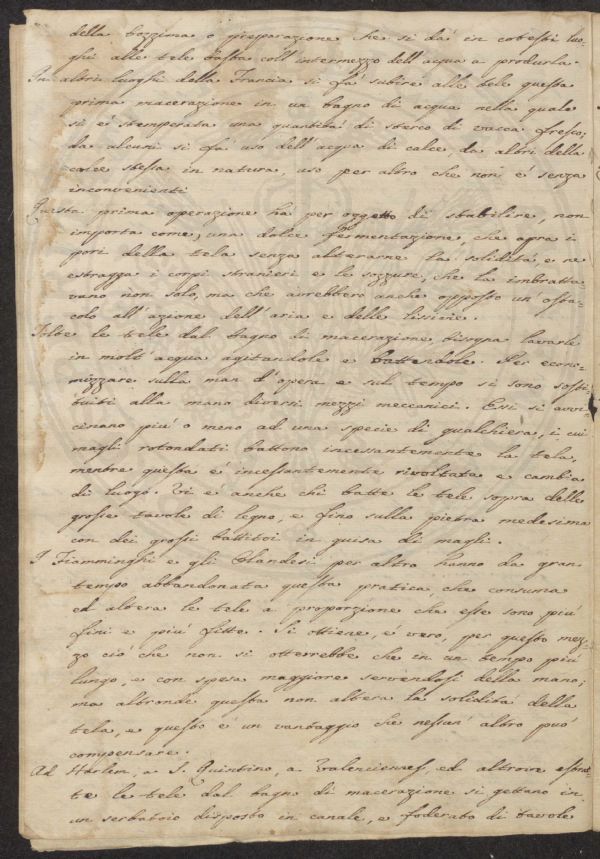 della bozzima o preparazione che si dà in cotesti luo-
ghi alle tele basta coll'intermezzo dell'acqua a produrla.
In altri luoghi della Francia si fà subire alle tele questa
prima macerazione in un bagno di acqua nella quale
si è stemperata una quantità di sterco di vacca fresco;
da alcuni si fà uso dell'acqua di calce da altri della
calce stessa in natura, uso per altro che non è senza
inconvenienti
Questa prima operazione ha per oggetto di stabilire, non
importa come, una dolce fermentazione, che apra i
pori della tela senza alterarne la solidità e ne
estragga i corpi stranieri e le sozzure, che la imbratta-
vano non solo, ma che avrebbero anche opposto un osta-
colo all'azione dell'aria e delle lissivie.
Tolte le tele dal bagno di macerazione bisogna lavarle
in molt'acqua agitandole e battendole. Per econo-
mizzare sulla man d'opera e sul tempo si sono sosti
tuiti alla mano diversi mezzi meccanici. Essi si avvi
cinano più o meno ad una specie di gualchiera, i cui
magli rotondati battono incessantemente la tela,
mentre questa è incessantemente rivoltata e cambia
di luogo. Vi è anche chi batte le tele sopra delle
grosse tavole di legno, e fino sulla pietra medesima
con dei grossi battitoi in guisa di magli.
I Fiamminghi e gli Olandesi per altro hanno da gran
tempo abbandonata questa pratica, che consuma
ed altera le tele a proporzione che esse sono più
fini e più fitte. Si ottiene, è vero, per questo mez-
zo ciò che non si otterrebbe che in un tempo più
lungo, e con spesa maggiore servendosi della mano;
ma altronde questa non altera la solidità della
tela, e questo è un vantaggio che nessun'altro può
compensare.
Ad Harlem, a S. Quintino, a Valenciennes, ed altrove
te le tele dal bagno di macerazione si gettano in
un serbatoio disposto in canale, e foderato di tavole